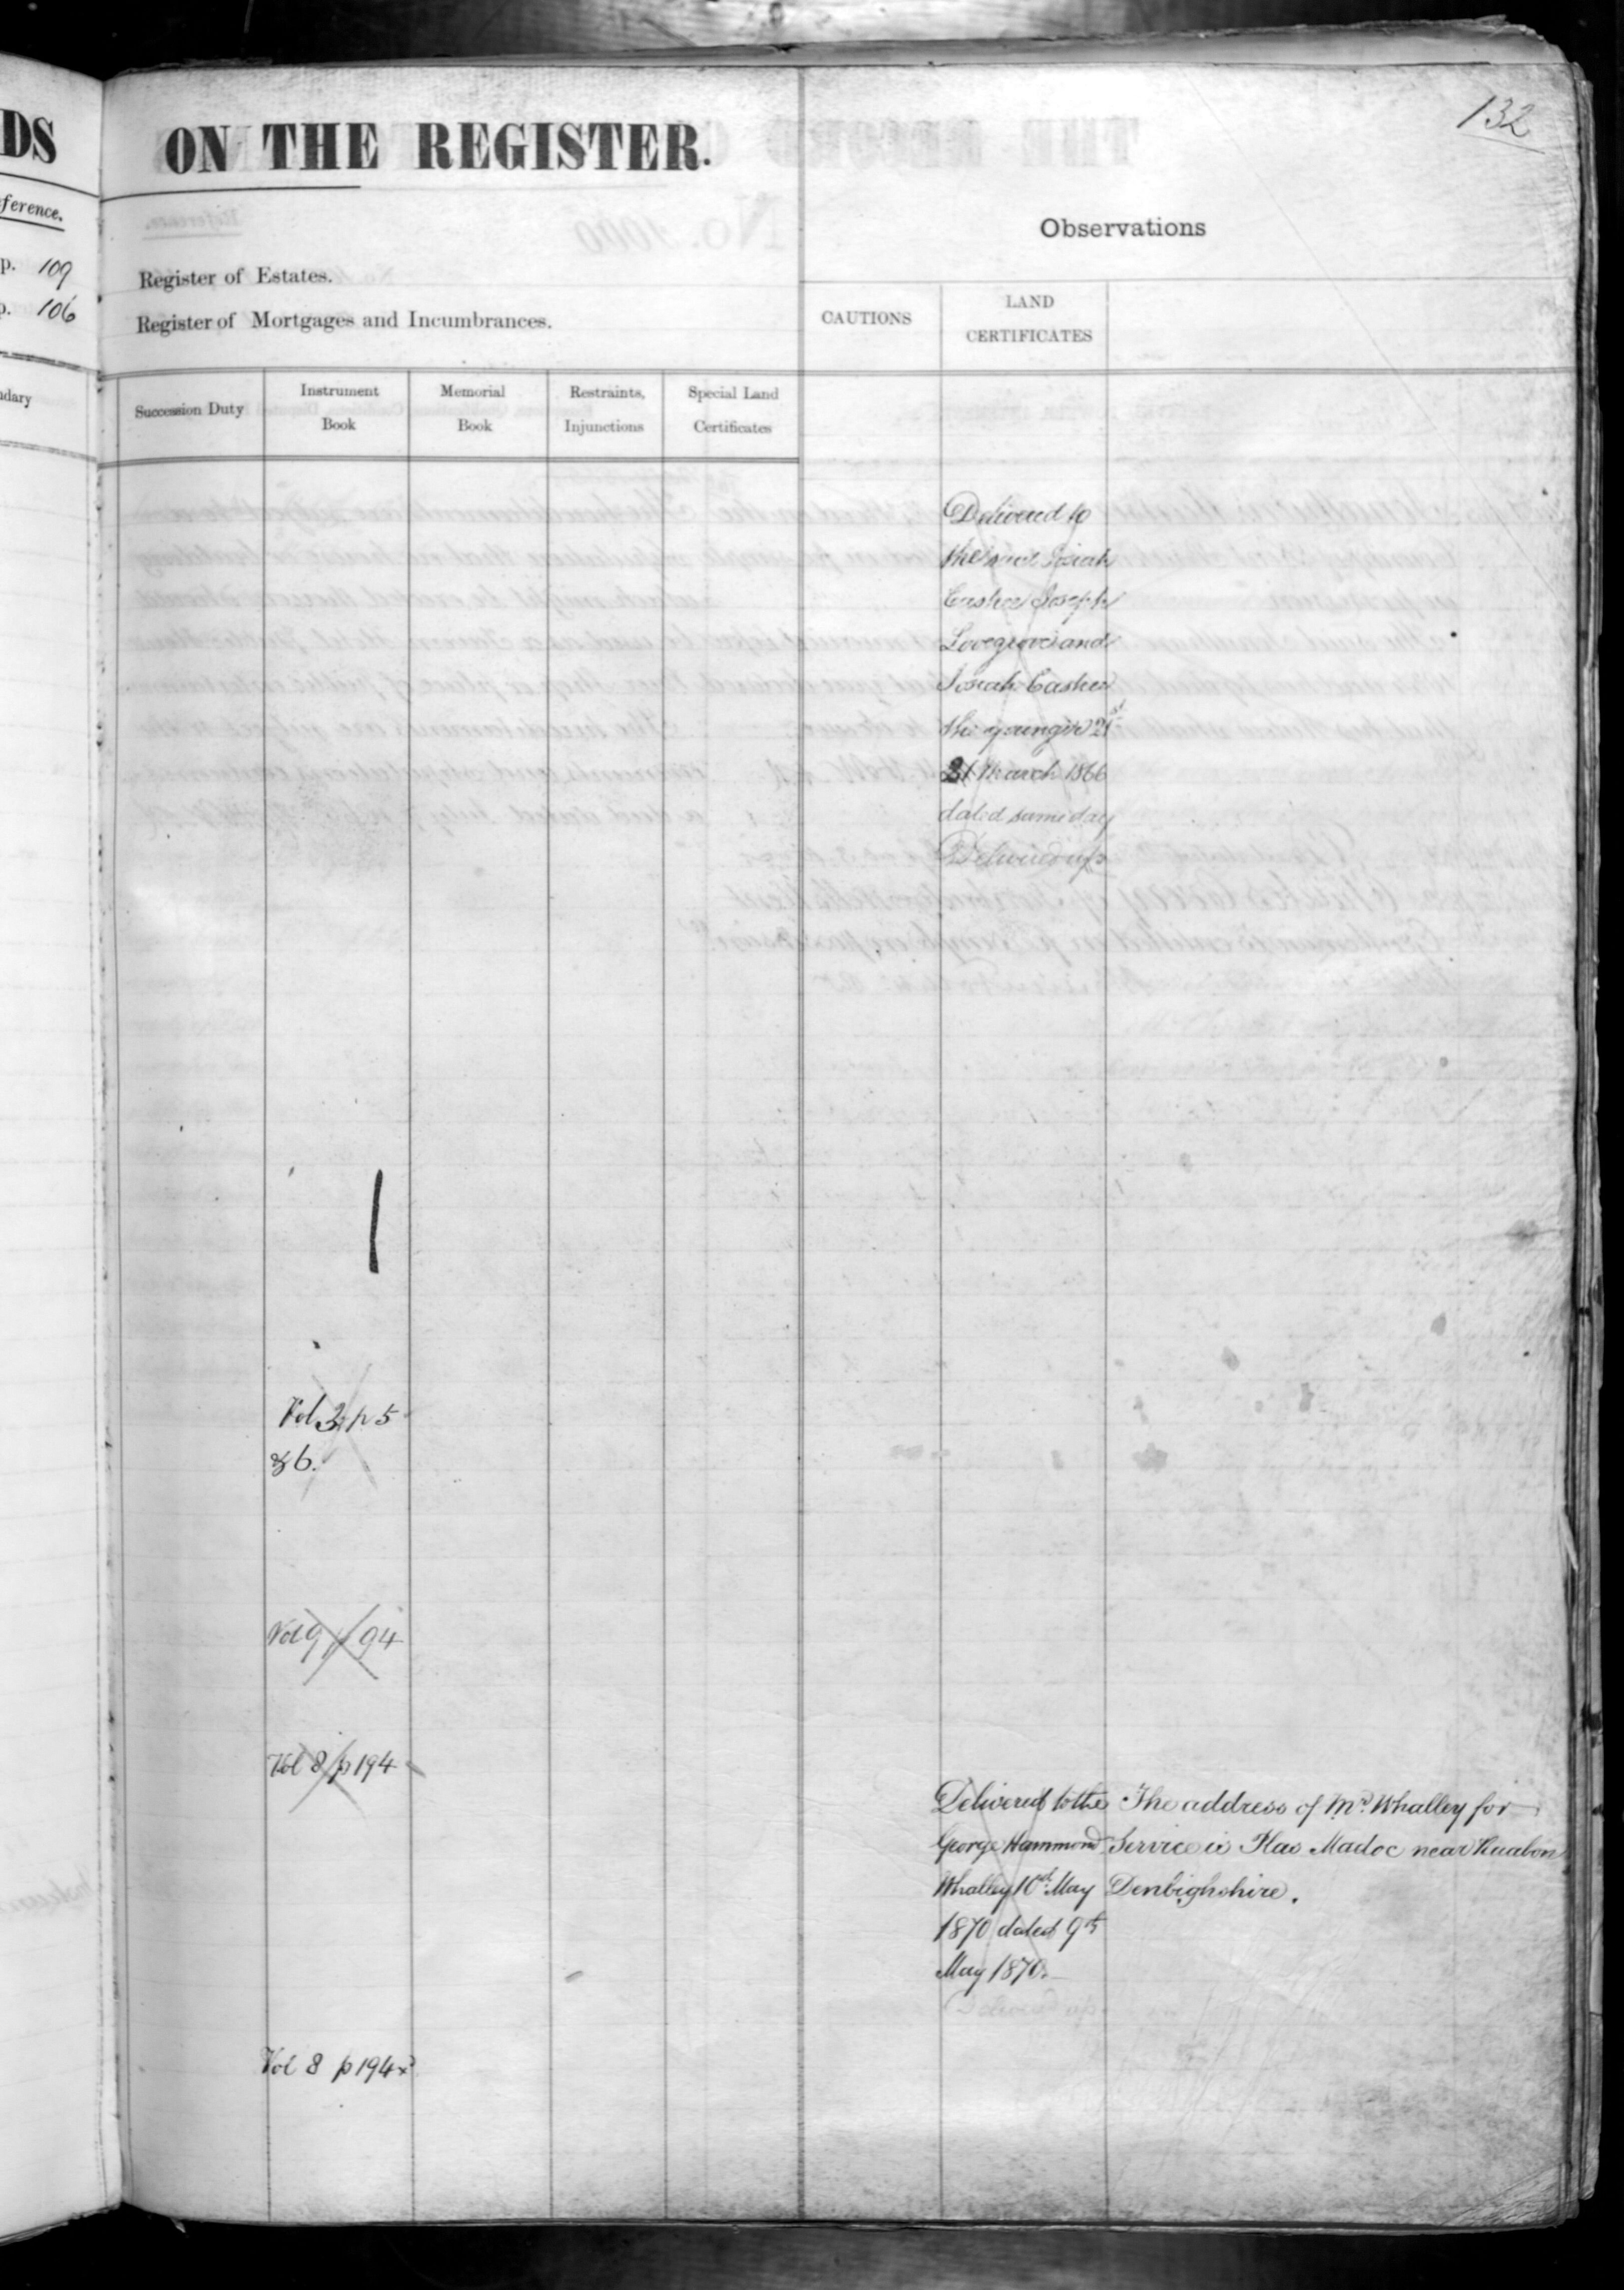 132
DS
ON THE REGISTER.
ference.
Observations
p. 109
Register of Estates.
p. 106
Register of Mortgages and Incumbrances.
CAUTIONS
LAND
CERTIFICATES
ndary
Succession Duty
Instrument
Book
Memorial
Book
Restraints,
Injunctions
Special Land
Certificates
Delivered to
the said Josiah
Cashee Joseph
Lovegrove and
Josiah Cashee
the younger 21st
21 March 1866
dated same day
Delivered up
Vol 3 p 5
& 6.
Vol 9 p 94
Vol 8 p 194
Delivered to the
George Hammond
Whalley 10th May
1870 dated 9th
May 1870.
Delivered up
The address of Mr. Whalley for
Service is Plas Madoc near Ruabon
Denbighshire.
Vol 8 p 194